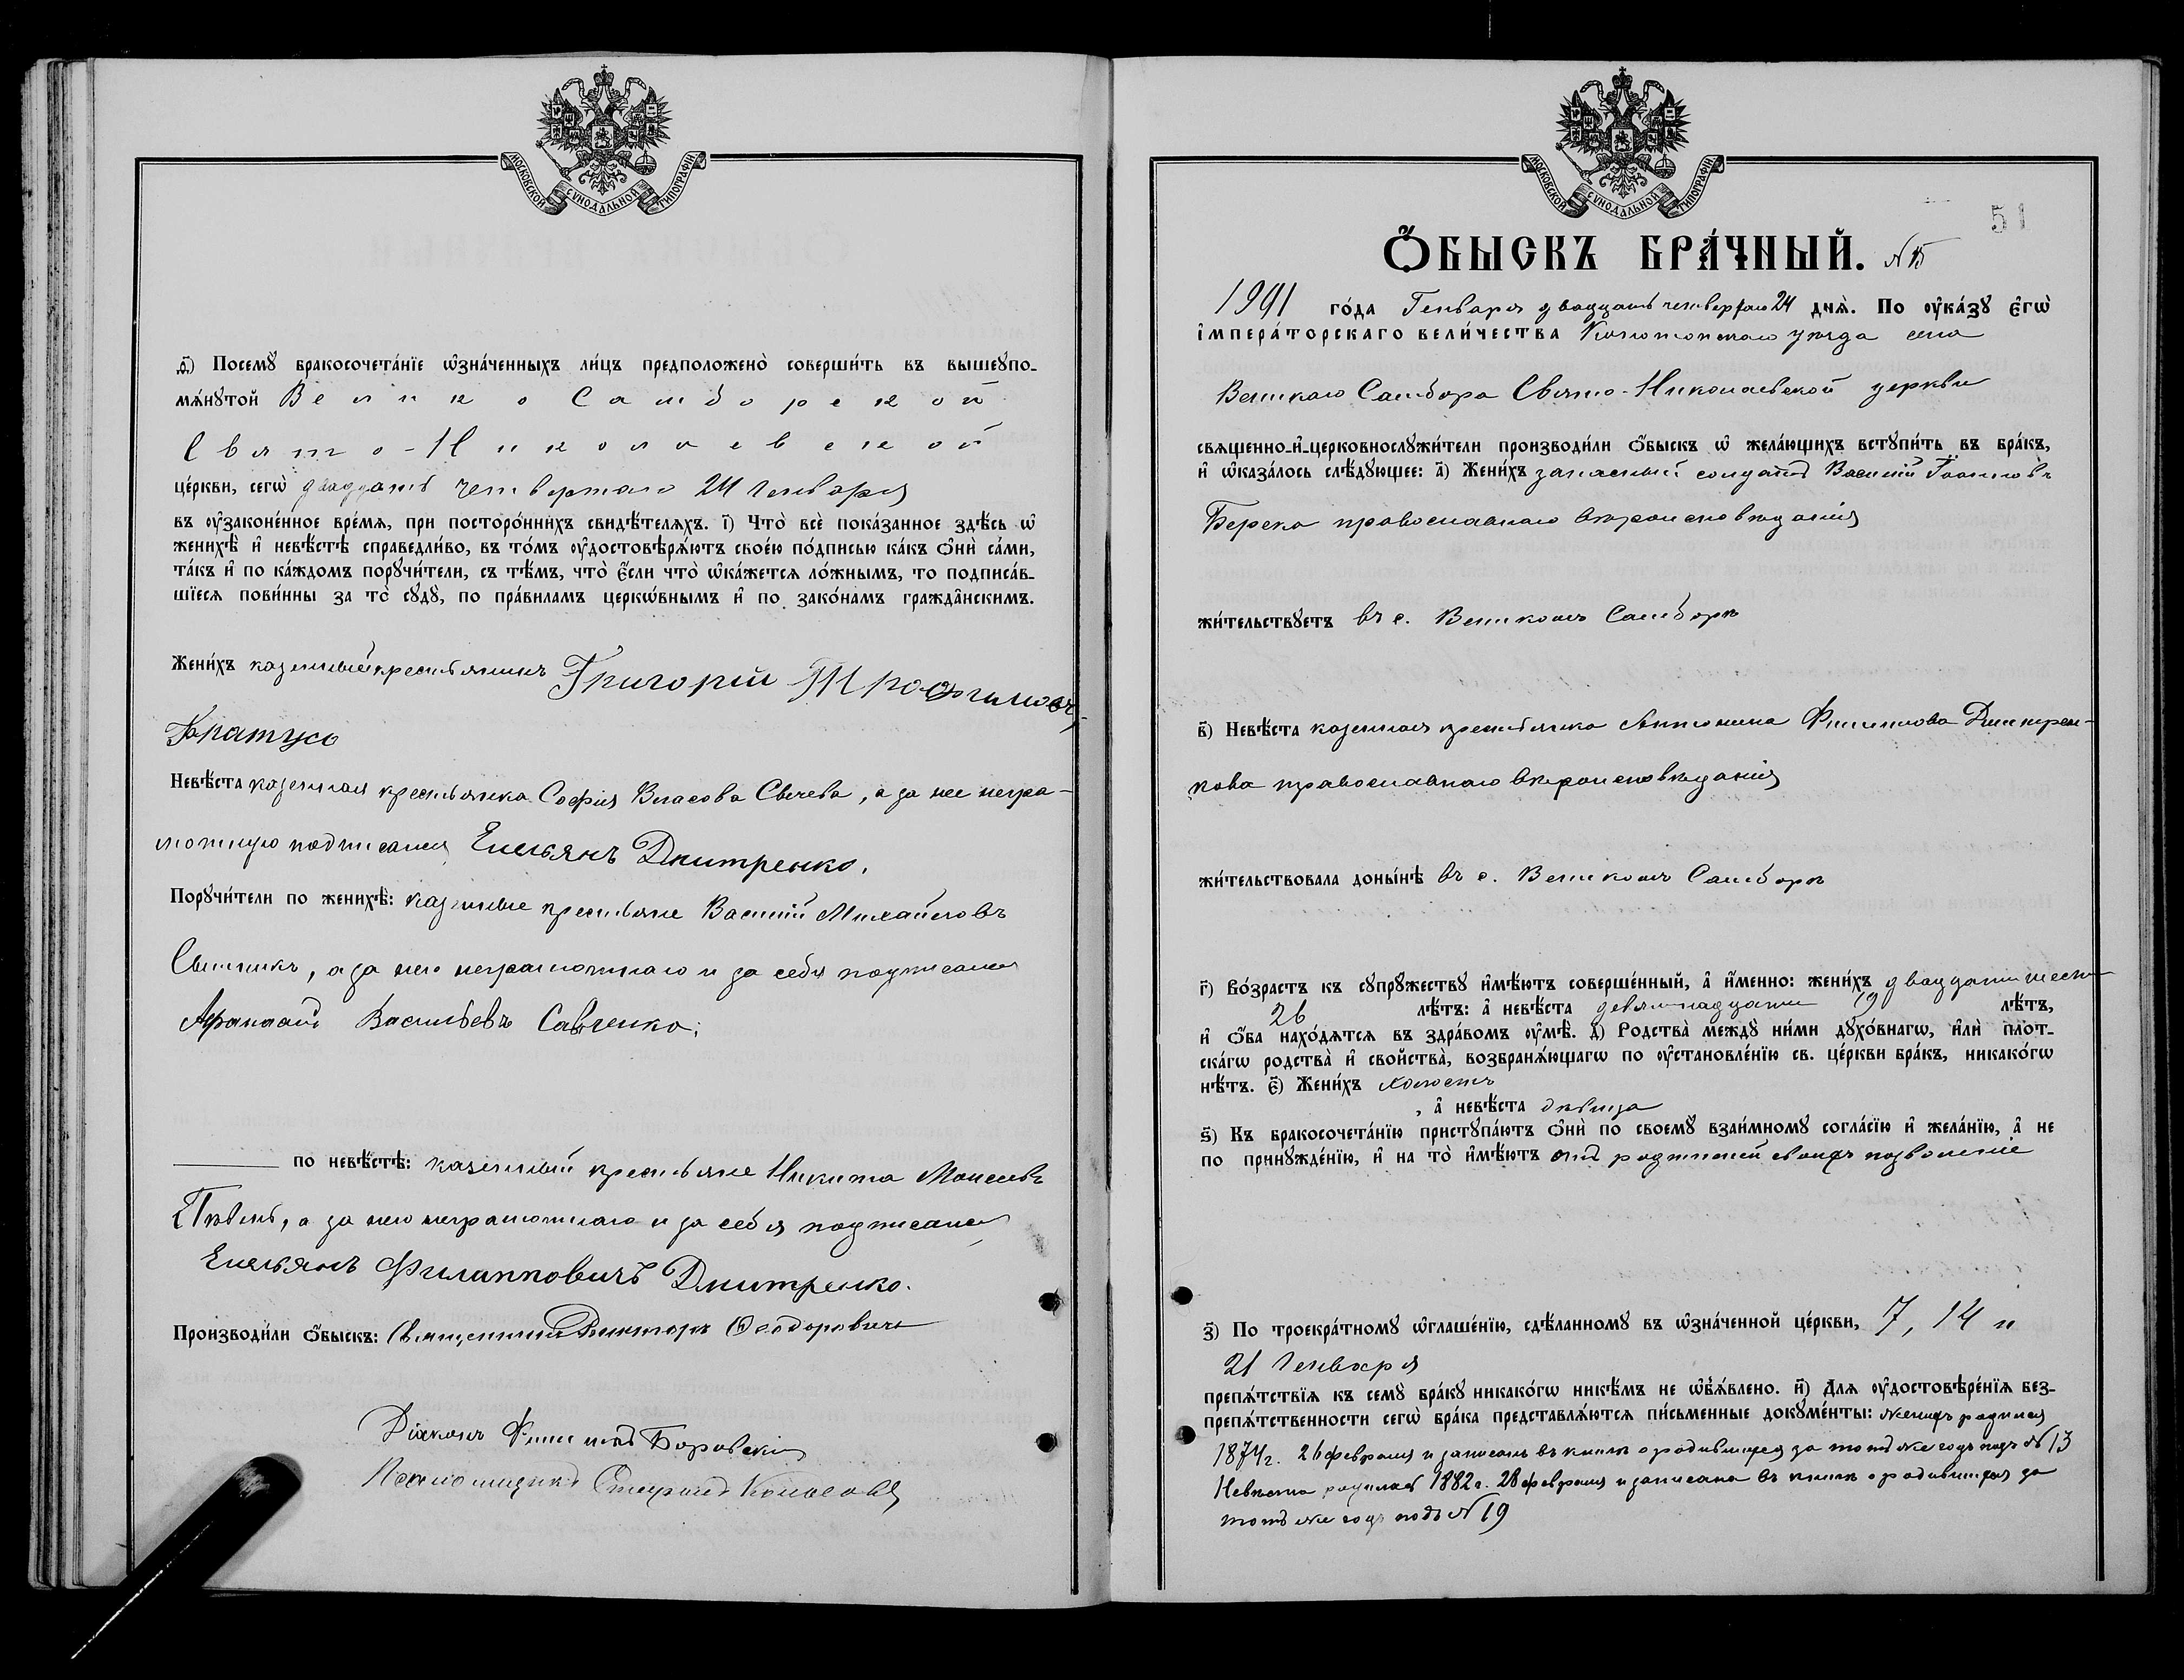 МОСКОВСКОЙ СѴНОДАЛЬНОЙ ТИПОГРАФІИ
ѳ҃) Посемꙋ̀ бракосочета́нїе ѡ҆зна́ченныхъ ли́цъ предположено̀ соверши́ть въ вышеꙋпо-
мѧ́нꙋтой Велико Самборской
Свято-Николаевской
це́ркви, сегѡ̀ двадцать четвертаго 24 Генваря
въ ᲂу҆законе́нное вре́мѧ, при посторо́ннихъ свидѣ́телѧхъ. і҃) Что̀ всѐ пока́занное здѣ́сь ѡ҆
женихѣ̀ и҆ невѣ́стѣ справедли́во, въ то́мъ ᲂу҆достовѣрѧ́ютъ свое́ю по́дписью ка́къ ѻ҆нѝ са́ми,
та́къ и҆ по ка́ждомъ порꙋчи́тели, съ тѣ́мъ, что̀ є҆́сли что̀ ѡ҆ка́жетсѧ ло́жнымъ, то подписа́в-
шїесѧ пови́нны за то̀ сꙋдꙋ̀, по пра́виламъ церкѡ́внымъ и҆ по зако́намъ гражда̑нскимъ.
Жени́хъ казенный крестьянинъ Григорій Трофимовъ
Братусь
Невѣ́ста казенная крестьянка София Власова Свечева, а за нее негра-
мотную подписался Емельянъ Дмитренко.
Порꙋчи́тели по женихѣ̀: казенные крестьяне Василій Михайловъ
а за него неграмотнаго и за себя подписался
Афанасій Васильевъ Савченко;
по невѣ́стѣ: казенный крестьяне Никита Моисеевъ
а за него неграмотнаго и за себя подписался
Емельянъ Филипповичъ Дмитренко.
Производи́ли ѻ҆́быскъ: Священникъ Викторъ Ѳеодоровичъ
Діаконъ Филиппъ Боровскій
Псаломщикъ
МОСКОВСКОЙ СѴНОДАЛЬНОЙ ТИПОГРАФІИ
51
Ѻ҆́БЫСКЪ БРА́ЧНЫЙ. № 15
1901 го́да Генваря двадцать четвертаго 24 днѧ̀. По ᲂу҆ка́зꙋ є҆гѡ̀
і҆мпера́торскаго вели́чества Конотопскаго уѣзда села
Великаго Самбора Свято-Николаевской церкви
свѧщенно-и҆-церковнослꙋжи́тели производи́ли ѻ҆́быскъ ѡ҆ жела́ющихъ встꙋпи́ть въ бра́къ,
и҆ ѡ҆каза́лось слѣ́дꙋющее: а҃) Жени́хъ запасный солдатъ Василій Іоанновъ
Берека православнаго вѣроисповѣданія
жи́тельствꙋетъ въ с. Великомъ Самборѣ
в҃) Невѣ́ста казенная крестьянка Антонина Филиппова Дмитрен-
кова православнаго вѣроисповѣданія
жи́тельствовала доны́нѣ въ с. Великомъ Самборѣ
г҃) Во́зрастъ къ сꙋпрꙋ́жествꙋ и҆мѣ́ютъ соверше́нный, а҆ и҆́менно: жени́хъ двадцати шести
26 лѣ́тъ: а҆ невѣ́ста девятнадцати 19 лѣ́тъ,
и҆ ѻ҆́ба нахо́дѧтсѧ въ здра́вомъ ᲂу҆мѣ̀. д҃) Родства̀ междꙋ̀ ни́ми дꙋхо́внагѡ, и҆лѝ плот-
ска́гѡ родства̀ и҆ свойства̀, возбранѧ́ющагѡ по ᲂу҆становле́нїю св. це́ркви бра́къ, никако́гѡ
нѣ́тъ. є҃) Жени́хъ холостъ
, а҆ невѣ́ста дѣвица
ѕ҃) Къ бракосочета́нїю пристꙋпа́ютъ ѻ҆нѝ по своемꙋ̀ взаи́мномꙋ согла́сїю и҆ жела́нїю, а҆ не
по принꙋжде́нїю, и҆ на то̀ и҆мѣ́ютъ отъ родителей своихъ позволеніе
з҃) По троекра́тномꙋ ѡ҆глаше́нїю, сдѣ́ланномꙋ въ ѡ҆зна́ченной це́ркви, 7, 14 и
21 Генваря
препѧ́тствїѧ къ семꙋ̀ бра́кꙋ никако́гѡ никѣ́мъ не ѡ҆б̾ѧ́влено. и҃) Длѧ ᲂу҆достовѣре́нїѧ без-
препѧ́тственности сегѡ̀ бра́ка представлѧ́ютсѧ пи́сьменные докꙋме́нты: женихъ родился
1874 г. 26 февраля и записанъ въ книгѣ о родившихся за тотъ же годъ подъ № 13
Невѣста родилась 1882 г. 28 февраля и записана въ книгѣ о родившихся за
тотъ же годъ подъ № 19